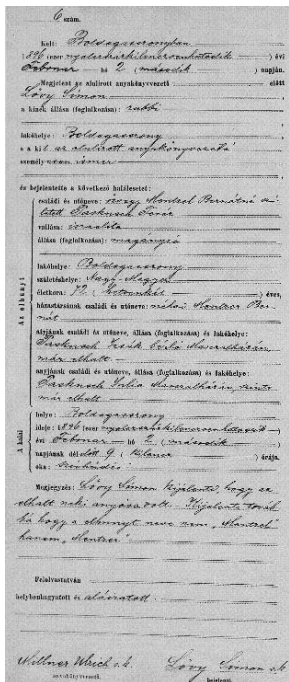 6 szám.
Kelt: Boldogasszonyban
1896 (ezer nyolczszázkilenczvenhatodik) évi
Februar hó 2 (második) napján.
Megjelent az alulirott anyakönyvezető előtt
Lövy Simon
a kinek állása (foglalkozása): rabbi
lakóhelye: Boldogasszony
a kit az alulirott anyakönyvvezető
személyesen ismer
és bejelentette a következő halálesetet:
Az elhunyt
családi és utóneve: özvegy Bernátné
született
vallása: izraelita
állása (foglalkozása): magánzó
lakóhelye: Boldogasszony
születéshelye: Nagy-
életkora: éves,
házastársának családi és utóneve: néhai Ber-
nát
atyjának családi és utóneve, állása (foglalkozása) és lakóhelye:
már elhalt
anyjának családi és utóneve, állása (foglalkozása) és lakóhelye:
már elhalt
A halál
helye: Boldogasszony
ideje: 1896 (ezer nyolczszázkilenczvenhatodik)
évi Februar hó 2 (második)
napjának délelőtt 9 (kilencz) órája.
oka:
Megjegyzés: Lövy Simon kijelenti, hogy az
elhalt neki anyósa volt. Kijelenti továb-
bá hogy a elhunyt neve nem
hanem
Felolvastatván
helybenhagyatott és aláiratott.
Willner Ulrich s.k. Lövy Simon s.k.
anyakönyvvezető. bejelentő.